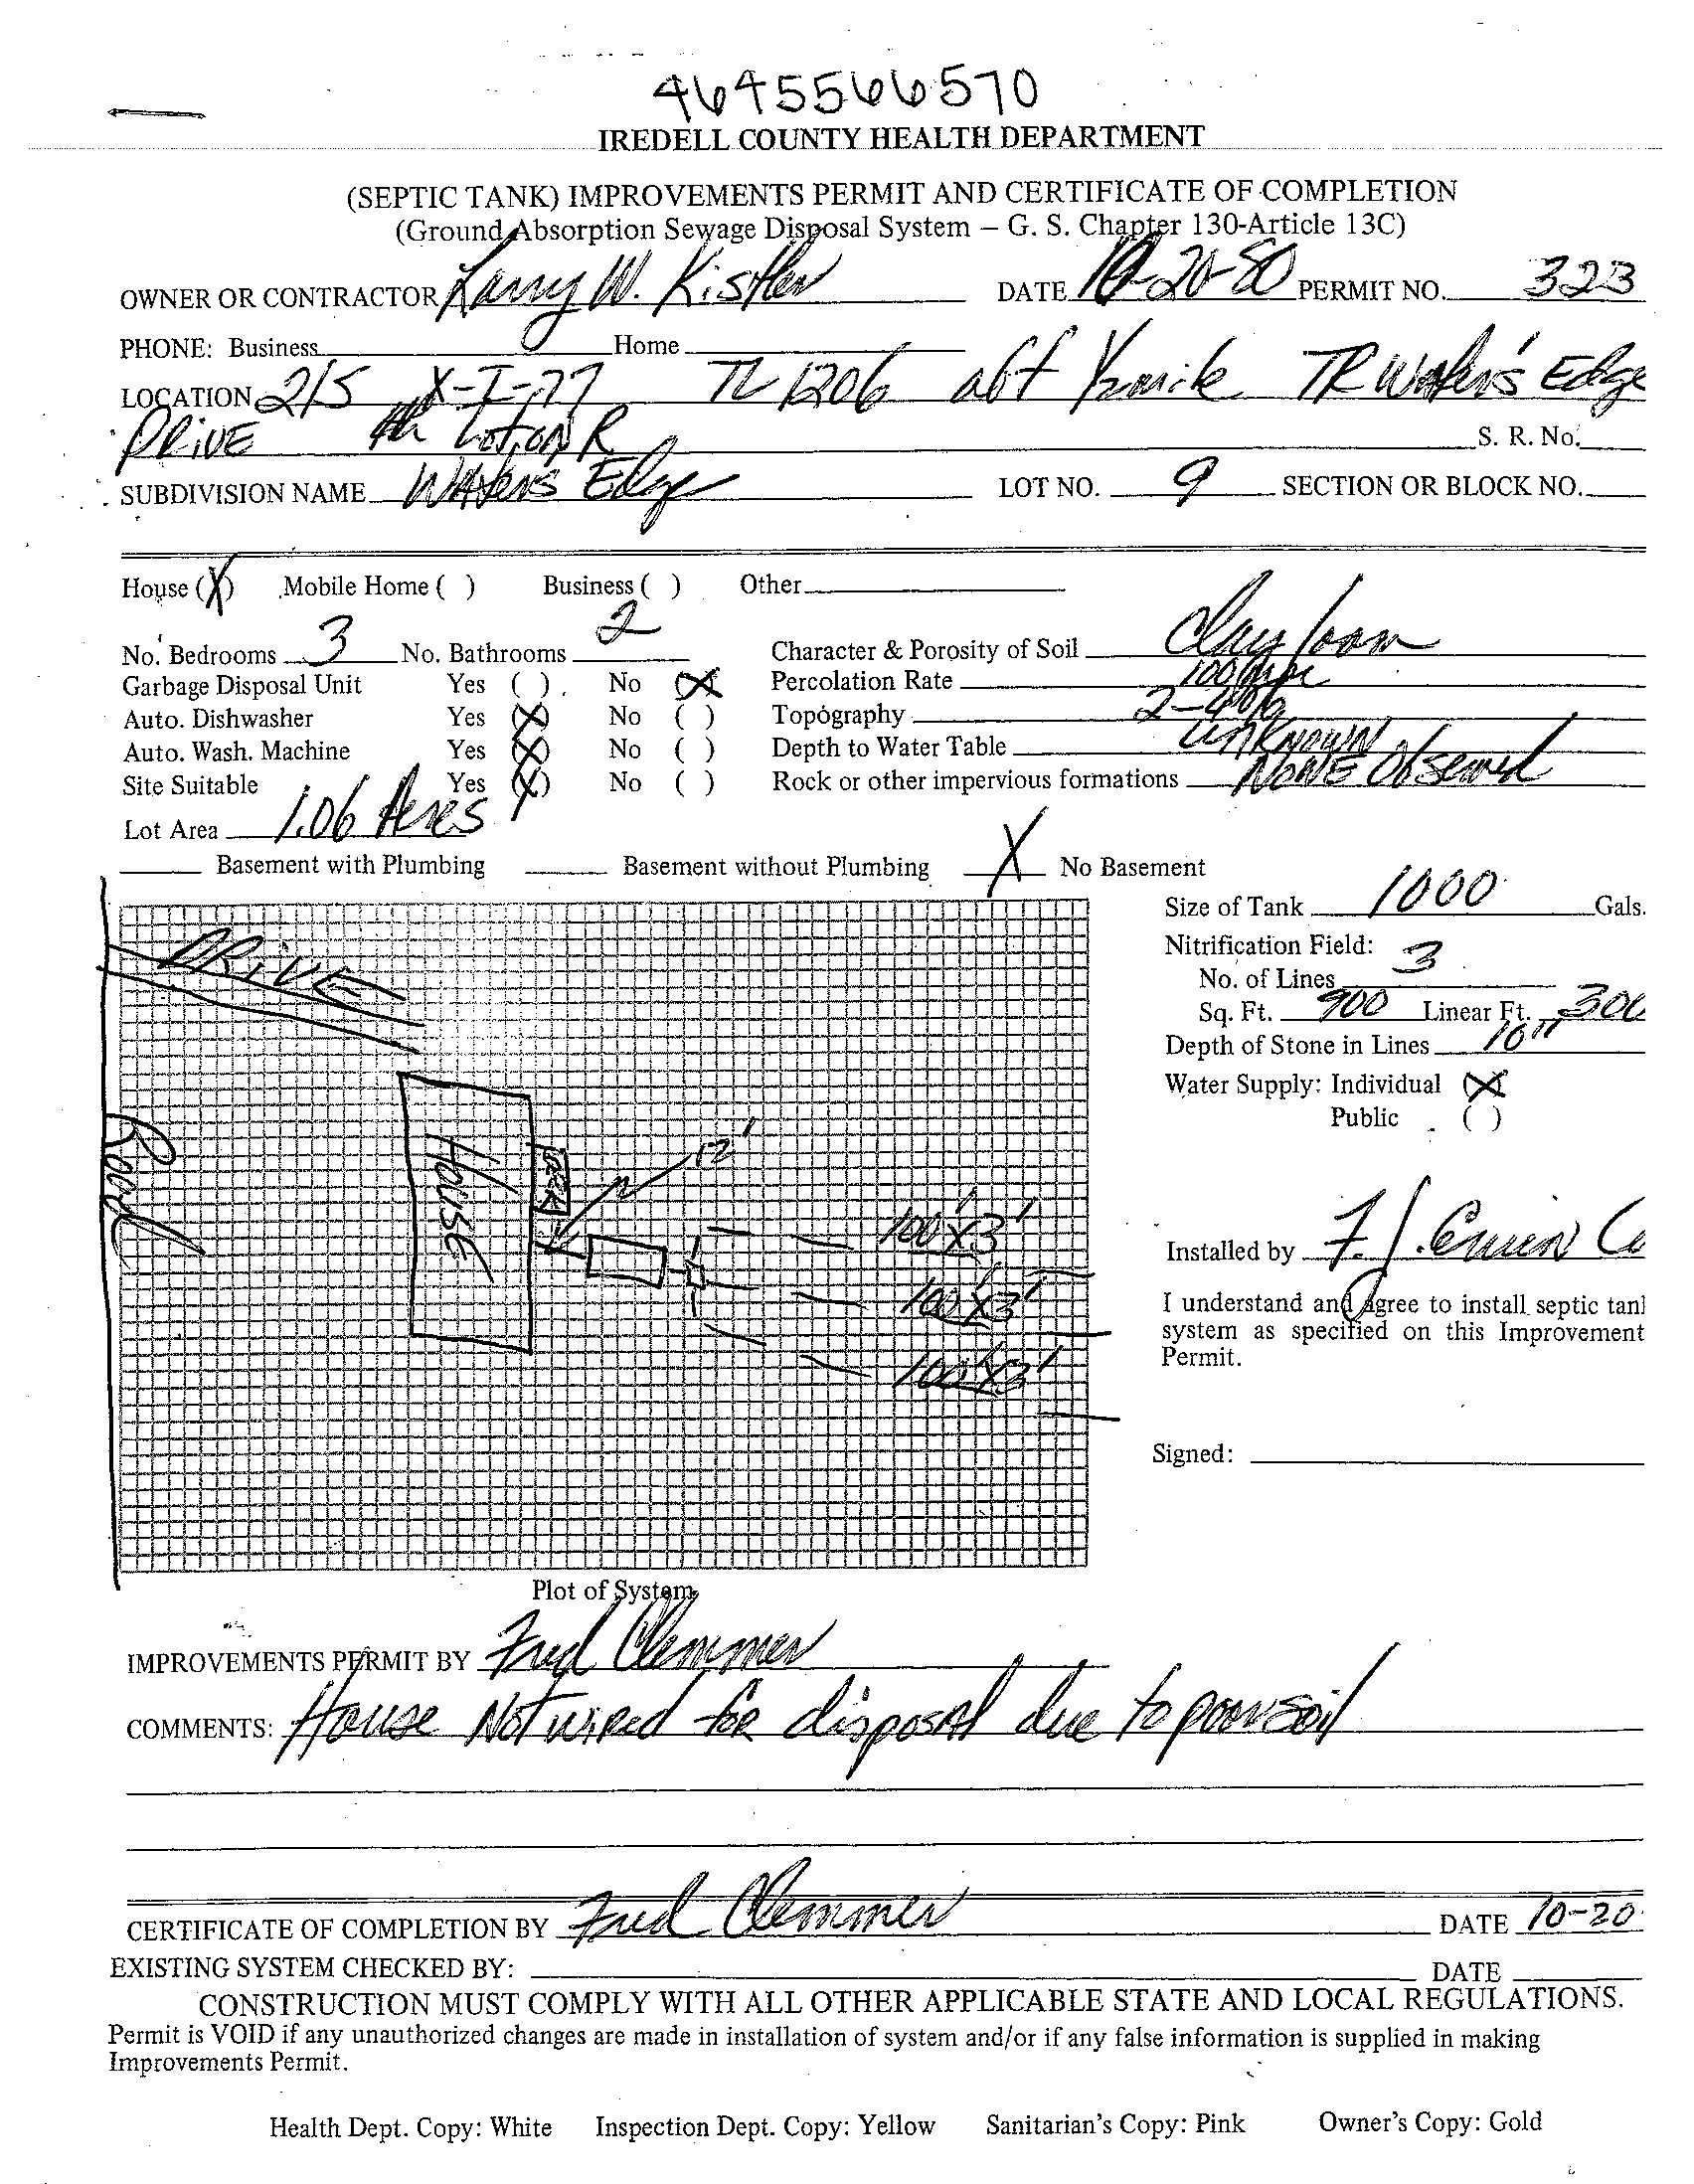 4645566570
IREDELL COUNTY HEALTH DEPARTMENT
(SEPTIC TANK) IMPROVEMENTS PERMIT AND CERTIFICATE OF COMPLETION
(Ground Absorption Sewage Disposal System – G. S. Chapter 130-Article 13C)
OWNER OR CONTRACTOR Larry W. Kistler DATE 10-20-80 PERMIT NO. 323
PHONE: Business Home
LOCATION 21S X-I-77 TL 1206 1/2 mile TR Water's Edge
DRIVE 4th Lot on R S. R. No.
SUBDIVISION NAME Waters Edge LOT NO. 9 SECTION OR BLOCK NO.
House (X) Mobile Home ( ) Business ( ) Other
No. Bedrooms 3 No. Bathrooms 2 Character & Porosity of Soil Clay loam
Garbage Disposal Unit Yes ( ) No (X) Percolation Rate 100 mpi
Auto. Dishwasher Yes (X) No ( ) Topography 2-4%
Auto. Wash. Machine Yes (X) No ( ) Depth to Water Table UNKNOWN
Site Suitable Yes (X) No ( ) Rock or other impervious formations NONE Observed
Lot Area 1.06 Acres
Basement with Plumbing Basement without Plumbing X No Basement
Size of Tank 1000 Gals.
Nitrification Field:
No. of Lines 3
Sq. Ft. 900 Linear Ft. 300
Depth of Stone in Lines 10"
Water Supply: Individual (X)
Public ( )
DRIVE
Road
HOUSE
DECK
12'
100'X3'
100'X3'
100'X3'
Installed by F.
I understand and agree to install septic tank
system as specified on this Improvement
Permit.
Signed:
Plot of System
IMPROVEMENTS PERMIT BY Fred Clemmer
COMMENTS: House Not wired for disposal due to poor soil
CERTIFICATE OF COMPLETION BY Fred Clemmer DATE 10-20
EXISTING SYSTEM CHECKED BY: DATE
CONSTRUCTION MUST COMPLY WITH ALL OTHER APPLICABLE STATE AND LOCAL REGULATIONS.
Permit is VOID if any unauthorized changes are made in installation of system and/or if any false information is supplied in making
Improvements Permit.
Health Dept. Copy: White Inspection Dept. Copy: Yellow Sanitarian's Copy: Pink Owner's Copy: Gold